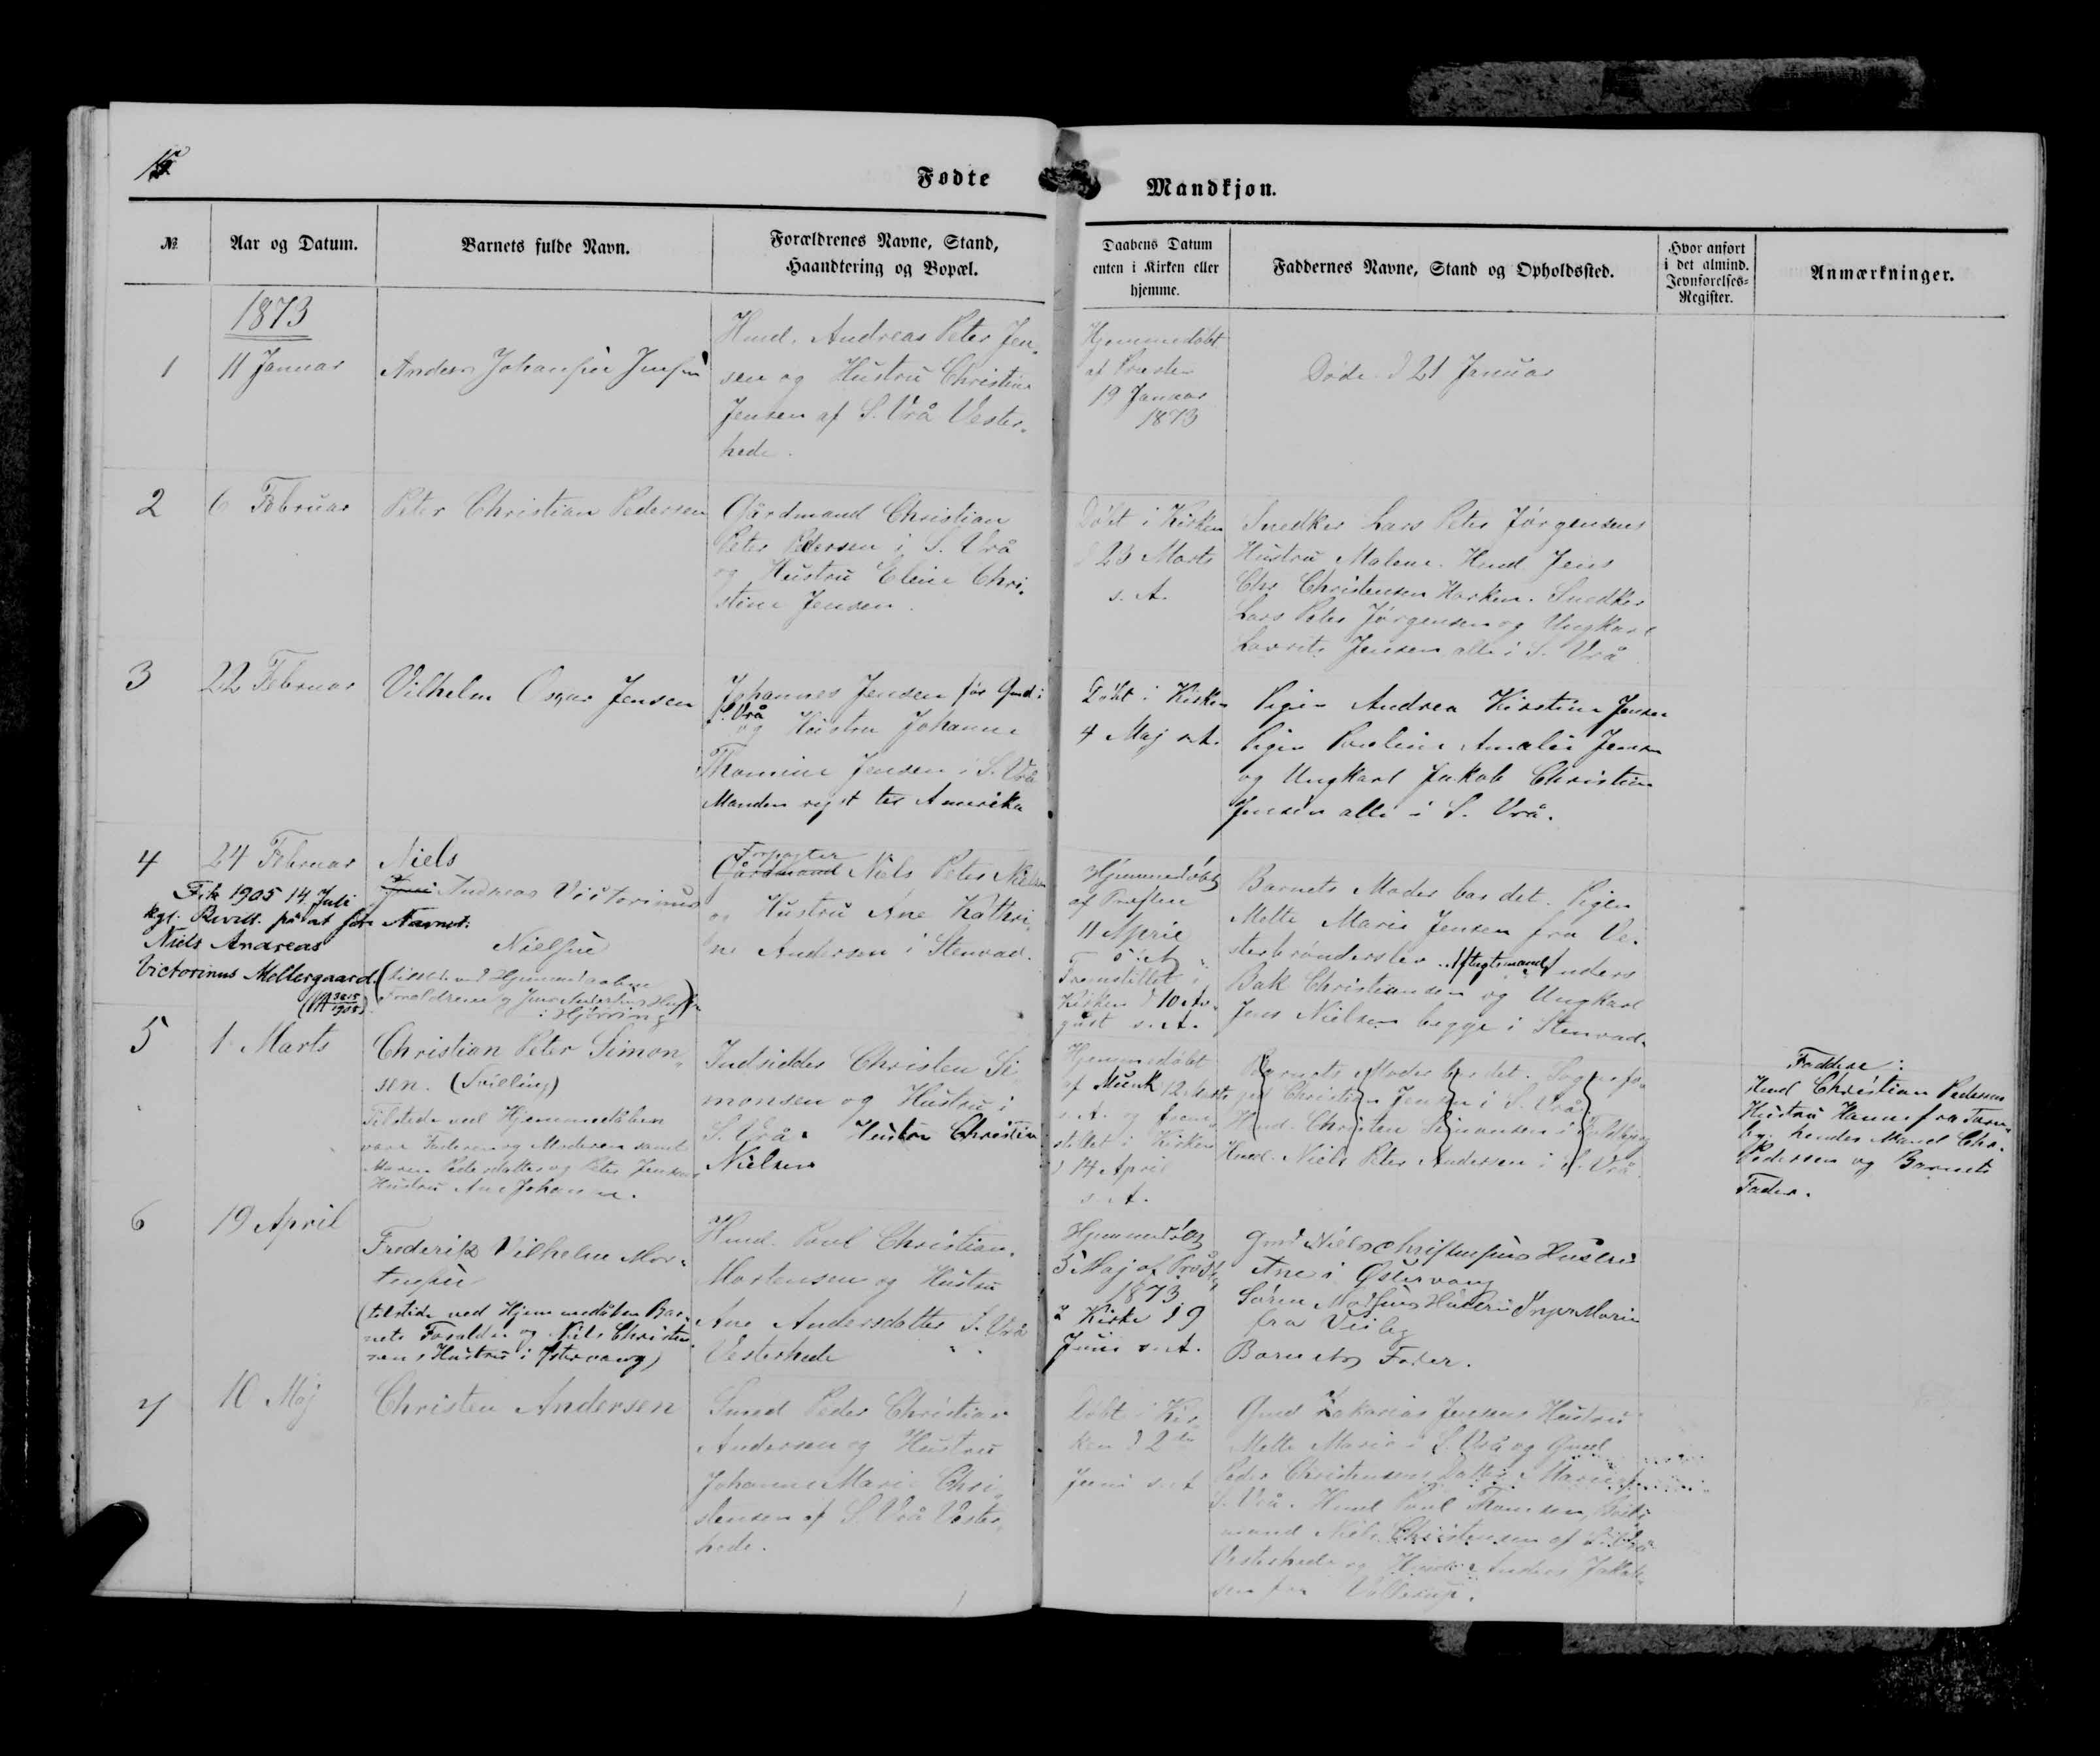 Fødte
Mandkjøn.
№
Aar og Datum.
Barnets fulde Navn.
Forældrenes Navne, Stand,
Haandtering og Bopæl.
Daabens Datum
enten i Kirken eller
hjemme.
Faddernes Navne, Stand og Opholdssted.
Hvor anført
i det almind.
Jevnførelses-
Register.
Anmærkninger.
1873
1
11 Januar
Anders Johansen Jensen
Hmd. Andreas Peter Jen-
sen og Hustru Christine
Jensen af S. Vrå Vester-
hede.
Hjemmedøbt
af Præsten
19 Januar
1873
Døde d 21 Januar
2
6 Februar
Peter Christian Pedersen
Gårdmand Christian
Peter Pedersen i S. Vrå
og Hustru Eline Chri-
stine Jensen.
Døbt i Kirken
d 23 Marts
s. A.
Snedker Lars Peter Jørgensens
Hustru Malene. Hmd Jens
Chr. Christensen Harken. Snedker
Lars Peter Jørgensen og Ungkarl
Lavrits Jensen alle i S. Vrå
3
22 Februar
Vilhelm Osgar Jensen
Johannes Jensen før Gmd i
S. Vrå
og Hustru Johanne
Thomine Jensen i S. Vrå
Manden rejst til Amerika
Døbt i Kirken
4 Maj s. A.
Pigen Andrea Kirstine Jensen
Pigen Pouline Amalie Jensen
og Ungkarl Jakob Christian
Jensen alle i S. Vrå.
4
24 Februar
Niels
Jens Andreas Victorinus
Nielsen
Fik 1905 14. Juli
kgl. Bevill. på at føre Navnet:
Niels Andreas
Victorinus Mellergaard.
(tilstede ved Hjemmedaaben
Forældrene og
i Hjørring)
Forpagter
Gårdmand Niels Peter Nielsen
og Hustru Ane Kathri-
ne Andersen i Stenvad.
Hjemmedøbt
af Præsten
11 April
s. A.
Fremstillet i
Kirken d 10 Au-
gust s. A.
Barnets Moder bar det. Pigen
Mette Marie Jensen fra Ve-
sterbrønderslev. Aftægtsmand Anders
Bak Christiansen og Ungkarl
Jens Nielsen begge i Stenvad.
5
1 Marts
Christian Peter Simon-
sen. (Tvilling)
Tilstede ved Hjemmedåben
vare Faderen og Moderen samt
Maren Pedersdatter og Peter Jensens
Hustru Ane Johanne.
Indsidder Christen Si-
monsen og Hustru i
S. Vrå. Hustru Christine
Nielsen
Hjemmedøbt
af Munk 12 Marts
s. A. og frem-
stillet i Kirken
d 14 April
s. A.
Barnets Moder bar det. Sognefo-
ged Christian Jensen i S. Vrå
Hmd. Christen Simonsen i
Hmd. Niels Peter Andersen i S. Vrå.
Faddere:
Hmd Christian Pedersens
Hustru Hanne fra
hendes Mand Chr.
Pedersen og Barnets
Fader.
6
19 April
Frederik Vilhelm Mor-
tensen
(tilstede ved Hjemmedåben Bar-
nets Forældre og Niels Christen-
sens Hustru i Østervang)
Hmd. Poul Christian
Mortensen og Hustru
Ane Andersdatter S. Vrå
Vesterhede
Hjemmedøbt
5 Maj af Præsten
1873
i Kirke d 9
Juni s. A.
Gmd Niels Christensens Hustru
Ane i Østervang
Søren Madsens Hustru Inger Marie
fra Visby
Barnets Fader.
7
10 Maj
Christen Andersen
Smed Peder Christian
Andersen og Hustru
Johanne Marie Chri-
stensen af S. Vrå Vester-
hede.
Døbt i Kir-
ken d 2den
Juni s. A
Gmd Zakarias Jensens Hustru
Mette Marie i S. Vrå og Gmd
Peder Christensens Datter Marie
S. Vrå. Hmd Poul Thomsen,
mand Niels Christensen af S. Vrå
Vesterhede og Hmd Anders Jakob-
sen fra Vollerup.